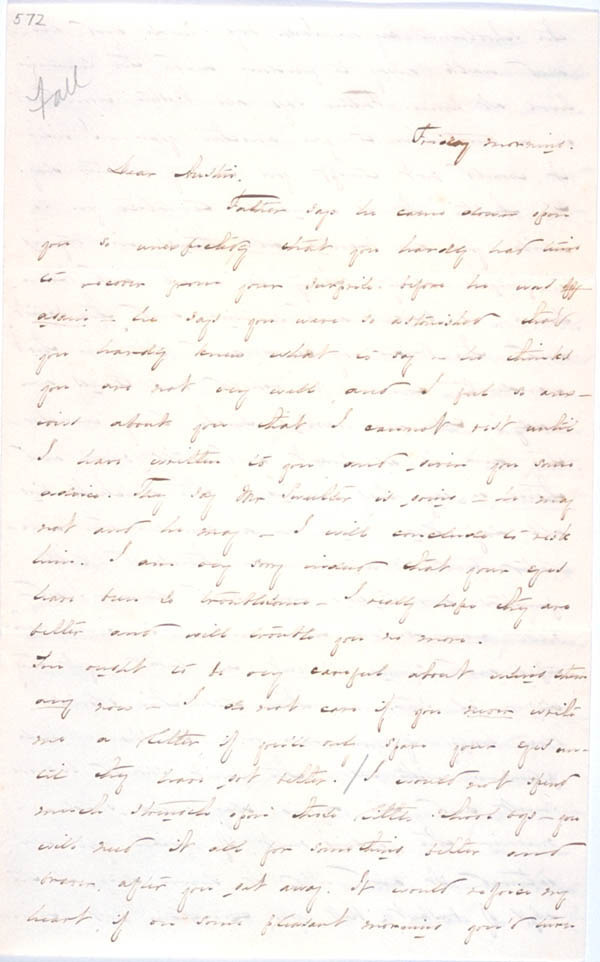 572
Fall
Friday morning.
Dear Austin.
Father says he came down upon
you so unexpectedly that you hardly had time
to recover from your surprise before he was off
again - he says you were so astonished that
you hardly knew what to say - he thinks
you are not very well, and I feel so anx-
ious about you that I cannot rest until
I have written to you and given you some
advice. They say Mr Smith is going - he may
not and he may - I will conclude to risk
him. I am very sorry indeed that your eyes
have been so troublesome - I really hope they are
better and will trouble you no more.
You ought to be very careful about using them
any now - I do not care if you never write
me a letter if you'll only spare your eyes un-
til they have got better. / I would not spend
much strength upon those little school boys - you
will need it all for something better and
braver, after you get away. It would rejoice my
heart, if on some pleasant morning you'd turn